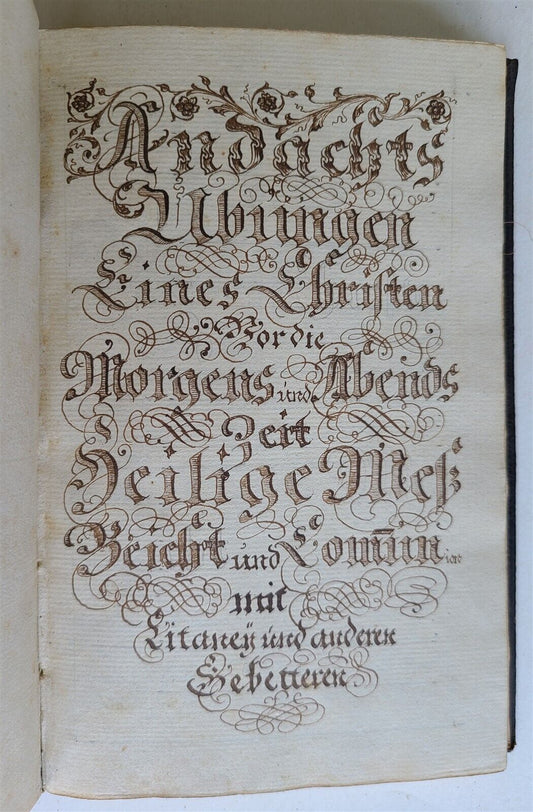 Andachts
Übungen
Eines Christen
Vor die
Morgens und Abends
Zeit
Heilige Meß
Beicht und Com̄union
mit
Litaneÿ und anderen
Gebetteren